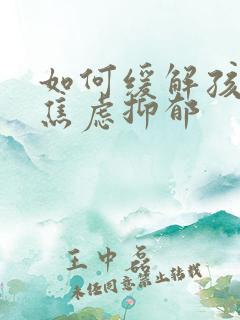 如何缓解孩
焦虑抑郁
王中磊
未经同意禁止转载